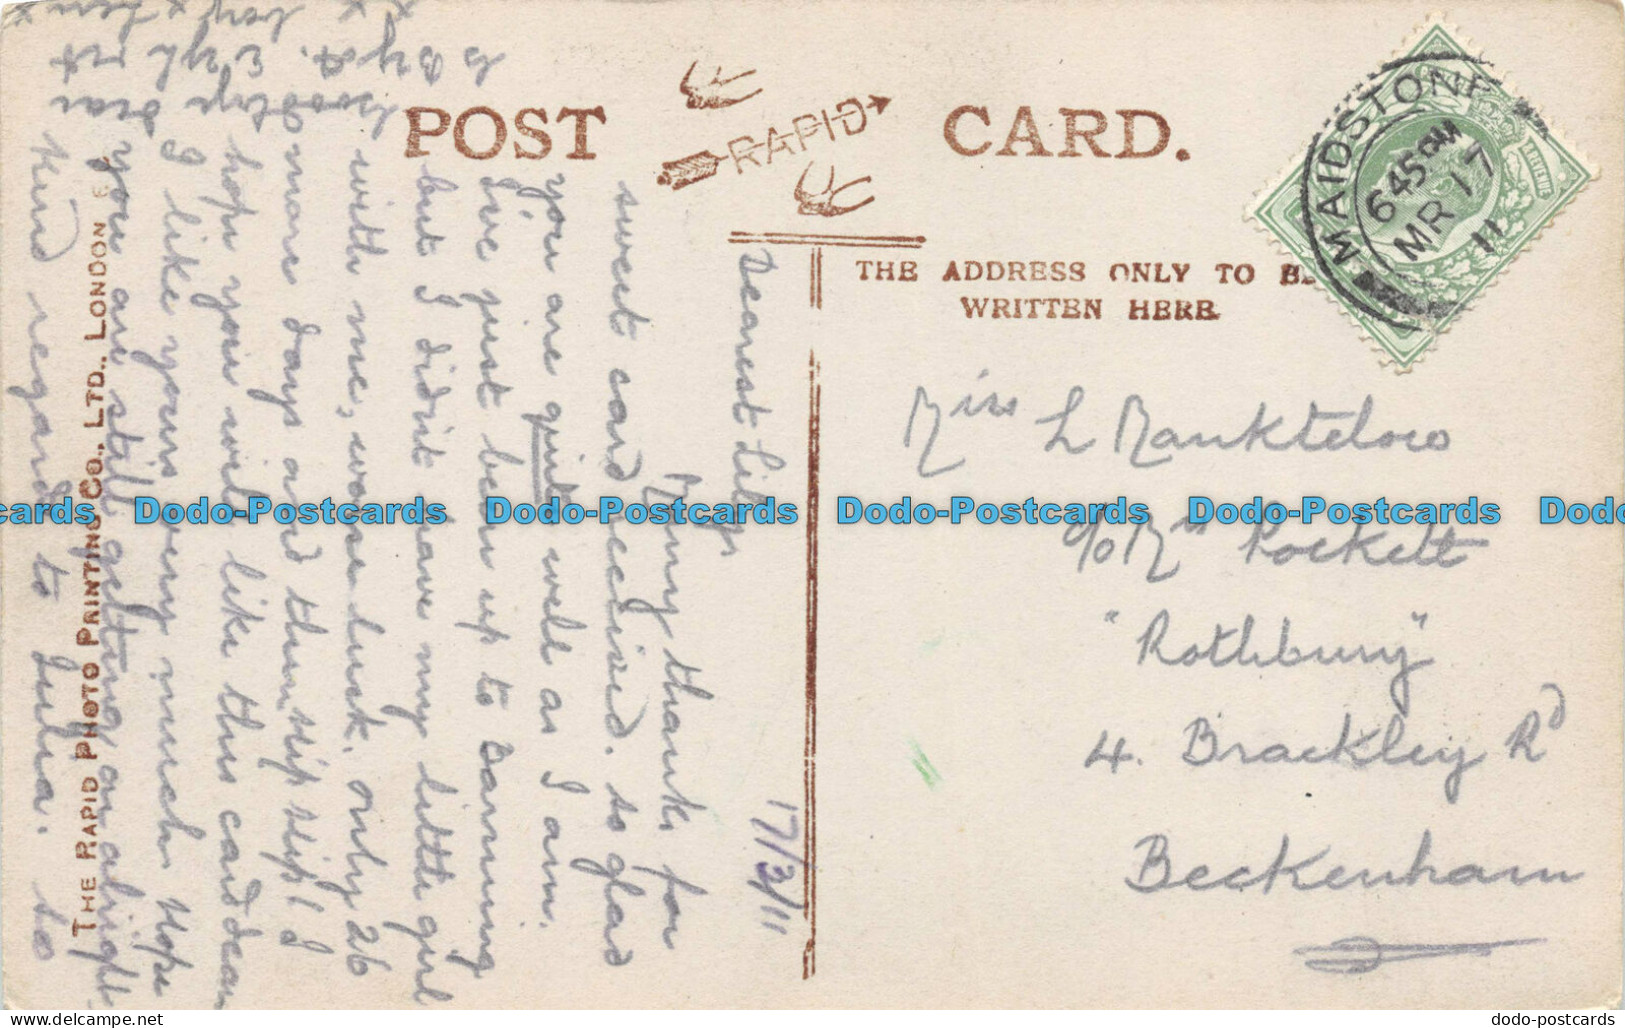 POST CARD.
RAPID
THE ADDRESS ONLY TO BE
WRITTEN HERE
MAIDSTONE
6 45 PM
MR 17
11
REVENUE
Miss L Manktelow
c/o Mrs Pockett
"Rothbury"
4. Brackley Rd
Beckenham
17/3/11
Dearest Lily,
Many thanks for
sweet card received. so glad
you are quite well as I am.
I've just been up to Barming
but I didn't have my little girl
with me, worse luck. only 26
more days and then, hip hip! I
hope you will like this card dear
I like yours very much. Hope
you are still getting on alright
Kind regards to Julia. so
Goodbye dear
THE RAPID PHOTO PRINTING CO., LTD., LONDON E
Dodo-Postcards Dodo-Postcards Dodo-Postcards Dodo-Postcards
dodo-postcards.com